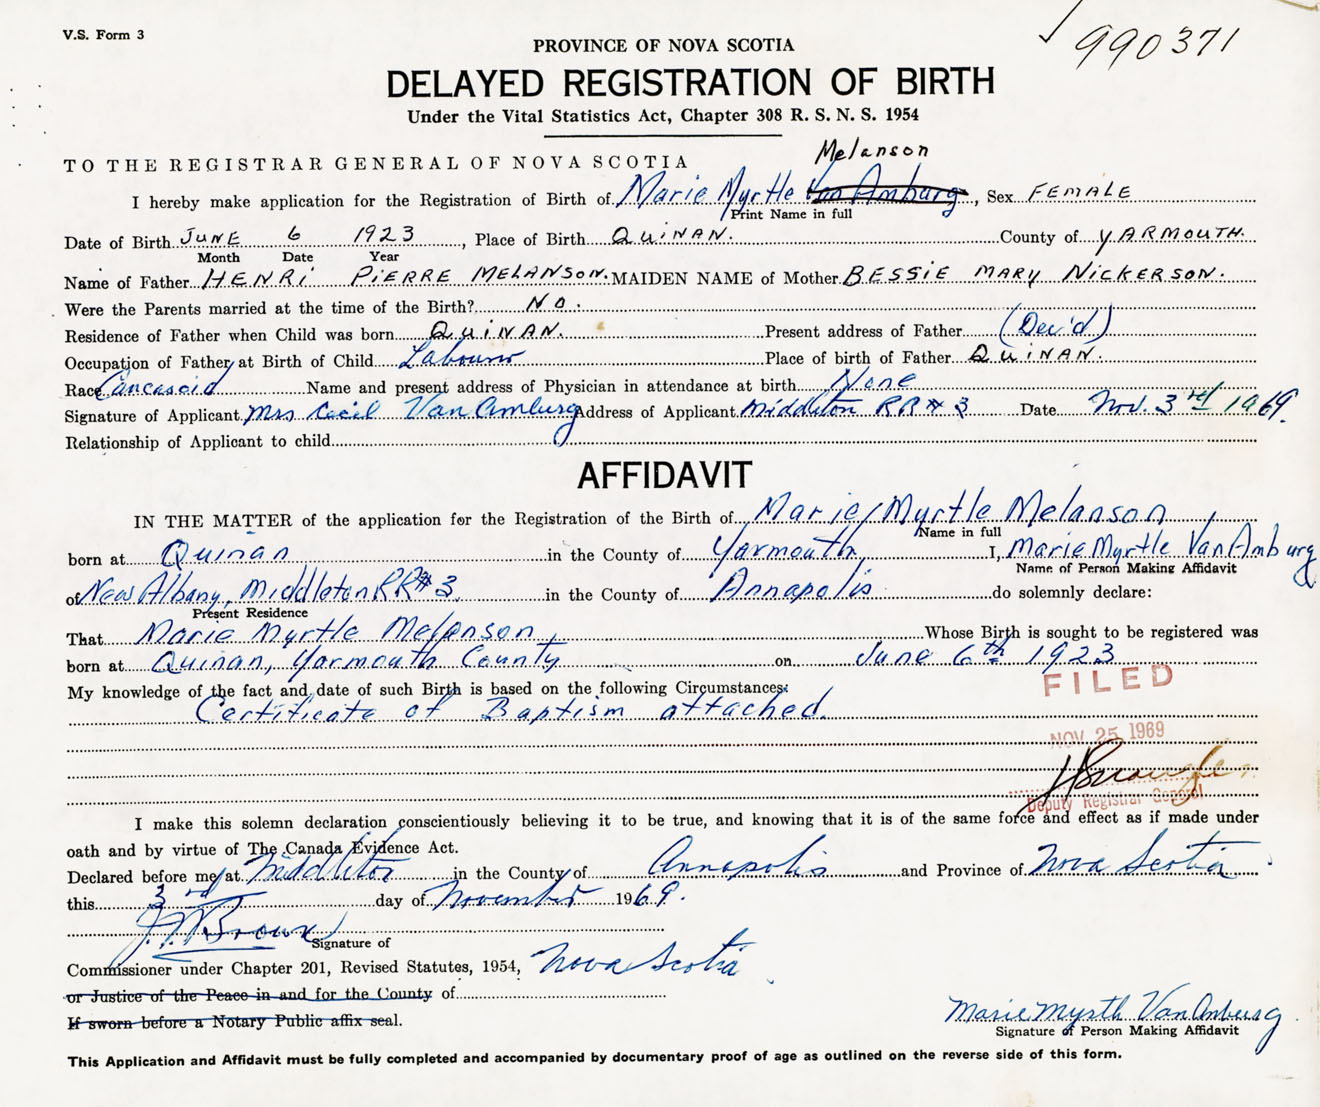 V.S. Form 3
990371
PROVINCE OF NOVA SCOTIA
DELAYED REGISTRATION OF BIRTH
Under the Vital Statistics Act, Chapter 308 R. S. N. S. 1954
TO THE REGISTRAR GENERAL OF NOVA SCOTIA
Melanson
I hereby make application for the Registration of Birth of Marie Myrtle Van Amburg, Sex FEMALE
Print Name in full
Date of Birth JUNE 6 1923, Place of Birth QUINAN. County of YARMOUTH.
Month Date Year
Name of Father HENRI PIERRE MELANSON. MAIDEN NAME of Mother BESSIE MARY NICKERSON.
Were the Parents married at the time of the Birth? NO.
Residence of Father when Child was born QUINAN. Present address of Father (Dec'd)
Occupation of Father at Birth of Child Labourer Place of birth of Father QUINAN.
Race Caucasoid Name and present address of Physician in attendance at birth None
Signature of Applicant Mrs Cecil VanAmburg Address of Applicant Middleton RR# 3 Date Nov. 3rd 1969.
Relationship of Applicant to child
AFFIDAVIT
IN THE MATTER of the application for the Registration of the Birth of Marie/Myrtle Melanson,
Name in full
born at Quinan in the County of Yarmouth I, Marie Myrtle VanAmburg
Name of Person Making Affidavit
of New Albany, Middleton RR#3 in the County of Annapolis do solemnly declare:
Present Residence
That Marie Myrtle Melanson, Whose Birth is sought to be registered was
born at Quinan, Yarmouth County on June 6th 1923
My knowledge of the fact and date of such Birth is based on the following Circumstances:
FILED
Certificate of Baptism attached.
NOV 25 1969
Deputy Registrar General
I make this solemn declaration conscientiously believing it to be true, and knowing that it is of the same force and effect as if made under
oath and by virtue of The Canada Evidence Act.
Declared before me at Middleton in the County of Annapolis and Province of Nova Scotia
this 3rd day of November 1969.
Brown
Signature of
Commissioner under Chapter 201, Revised Statutes, 1954, Nova Scotia
or Justice of the Peace in and for the County of
If sworn before a Notary Public affix seal.
Marie Myrtle VanAmburg
Signature of Person Making Affidavit
This Application and Affidavit must be fully completed and accompanied by documentary proof of age as outlined on the reverse side of this form.